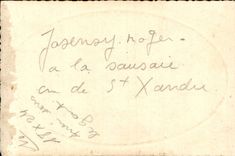 Jasensy. roger -
a la sausaie
cn de St Xandre
le
18 X 24